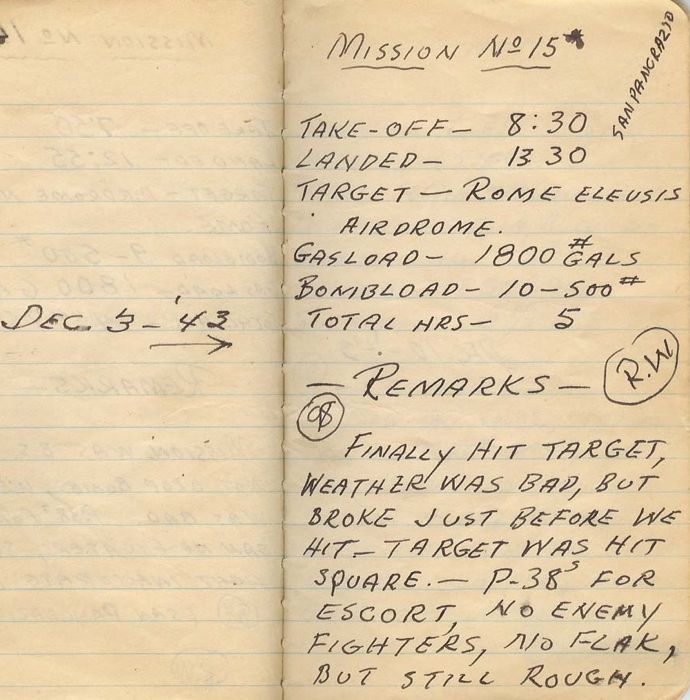 DEC. 3 - '43
MISSION Nº 15*
SAN PANCRAZIO
TAKE-OFF - 8:30
LANDED - 13 30
TARGET - ROME ELEUSIS
AIRDROME.
GASLOAD - 1800 # GALS
BOMBLOAD - 10-500#
TOTAL HRS - 5
- REMARKS -
R.W
98
FINALLY HIT TARGET,
WEATHER WAS BAD, BUT
BROKE JUST BEFORE WE
HIT - TARGET WAS HIT
SQUARE. - P-38s FOR
ESCORT, NO ENEMY
FIGHTERS, NO FLAK,
BUT STILL ROUGH.